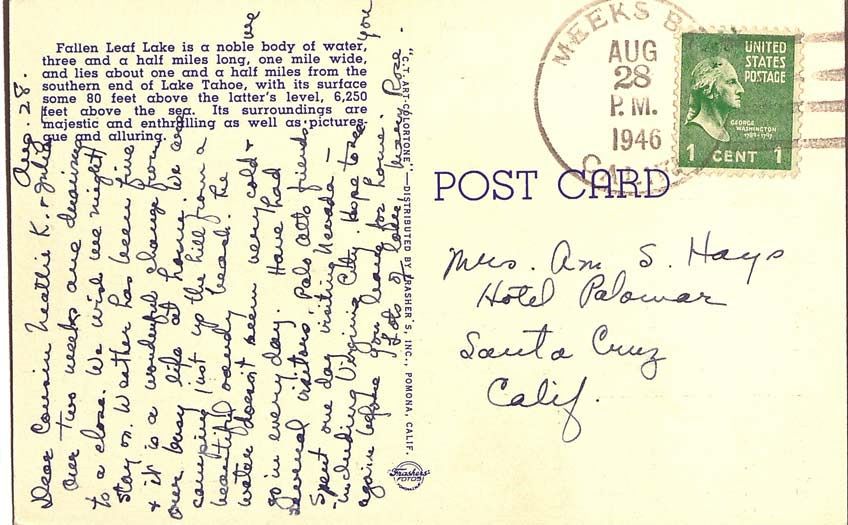 Fallen Leaf Lake is a noble body of water,
three and a half miles long, one mile wide,
and lies about one and a half miles from the
southern end of Lake Tahoe, with its surface
some 80 feet above the latter's level, 6,250
feet above the sea. Its surroundings are
majestic and enthralling as well as pictures-
que and alluring.
Aug. 28.
Dear Cousin Neallie K. & Julia
Our two weeks are drawing
to a close. We wish we might
stay on. Weather has been fine
& it is a wonderful change from
our busy life at home. We are
camping just up the hill from a
beautiful sandy beach. The
water doesn't seem very cold & we
go in every day. Have had
several visitors, Palo Alto friends
Spent one day visiting Nevada —
-including Virginia City. Hope to see you
again before you leave for home.
Lots of love,
"C.T. ART-COLORTONE"—DISTRIBUTED BY FRASHER'S, INC., POMONA, CALIF.
Frashers
FOTOS
MEEKS
AUG
28
P.M.
1946
UNITED
STATES
POSTAGE
GEORGE
WASHINGTON
1789-1797
1 CENT 1
POST CARD
Mrs. Am S. Hays
Hotel Palomar
Santa Cruz
Calif.